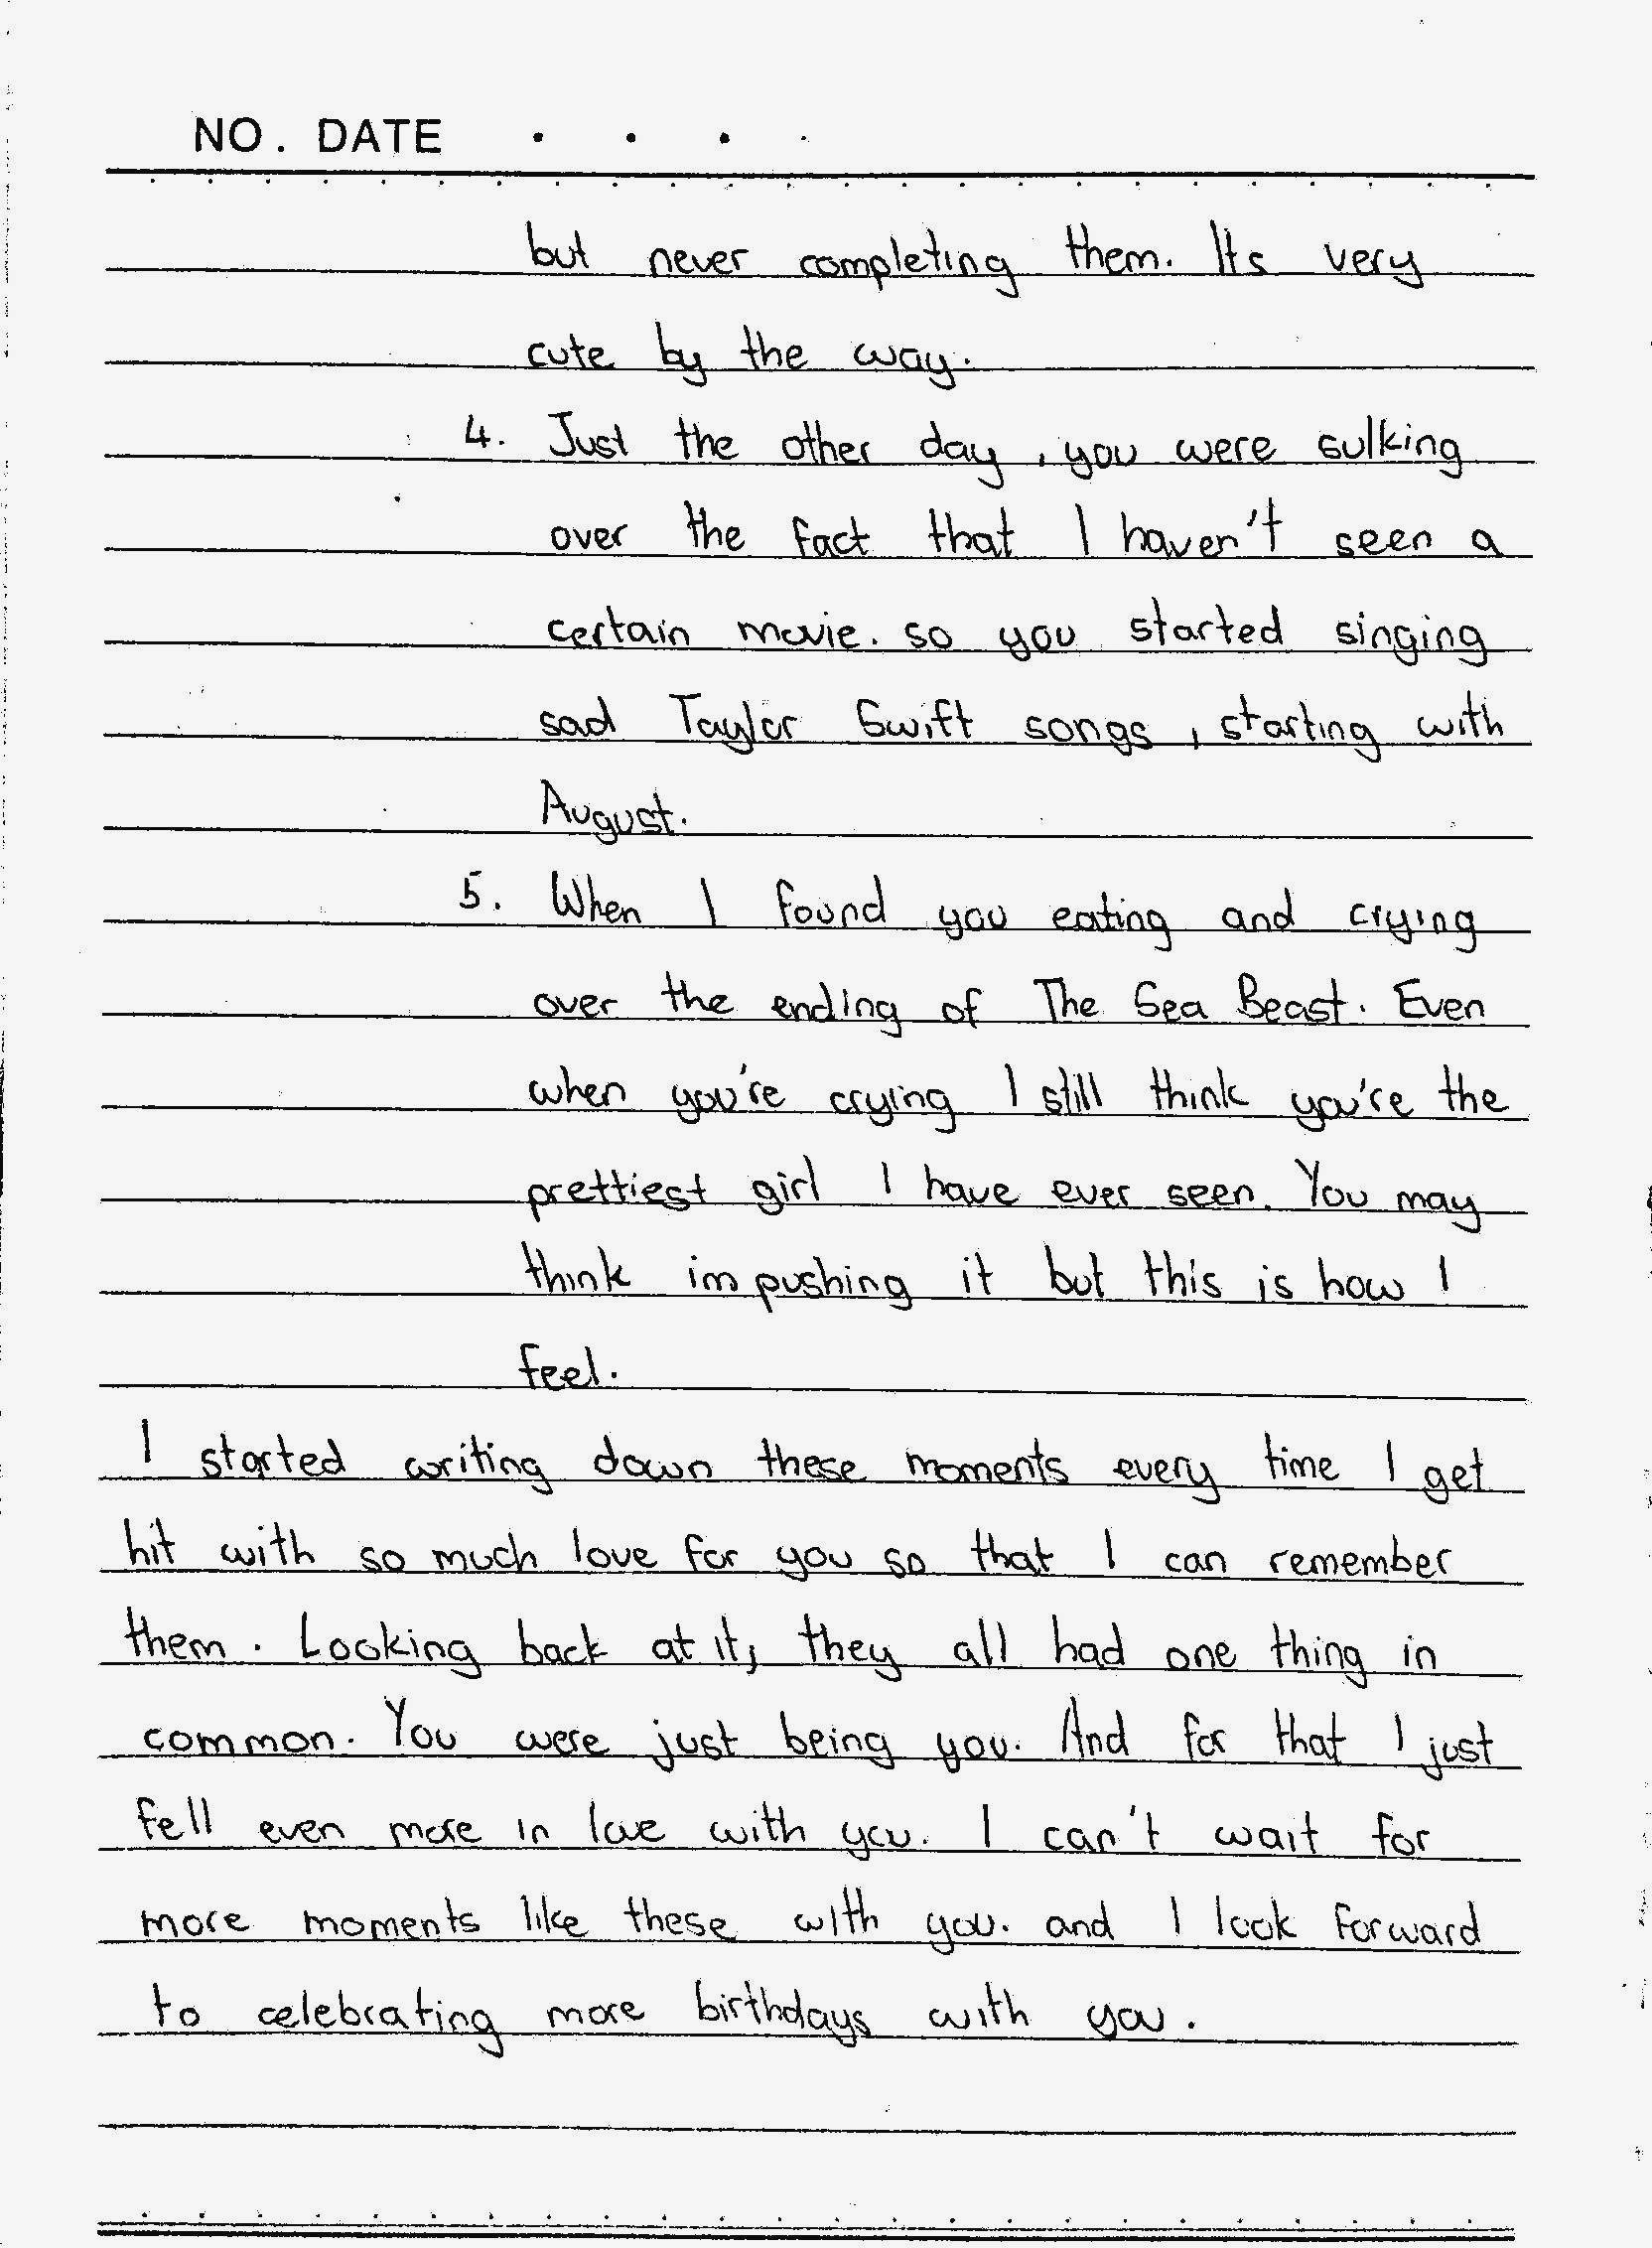 NO. DATE . . . .
but never completing them. Its very
cute by the way.
4. Just the other day, you were sulking
over the fact that I haven't seen a
certain movie. so you started singing
sad Taylor Swift songs, starting with
August.
5. When I found you eating and crying
over the ending of The Sea Beast. Even
when you're crying I still think you're the
prettiest girl I have ever seen. You may
think im pushing it but this is how I
feel.
I started writing down these moments every time I get
hit with so much love for you so that I can remember
them. Looking back at it, they all had one thing in
common. You were just being you. And for that I just
fell even more in love with you. I can't wait for
more moments like these with you. and I look forward
to celebrating more birthdays with you.